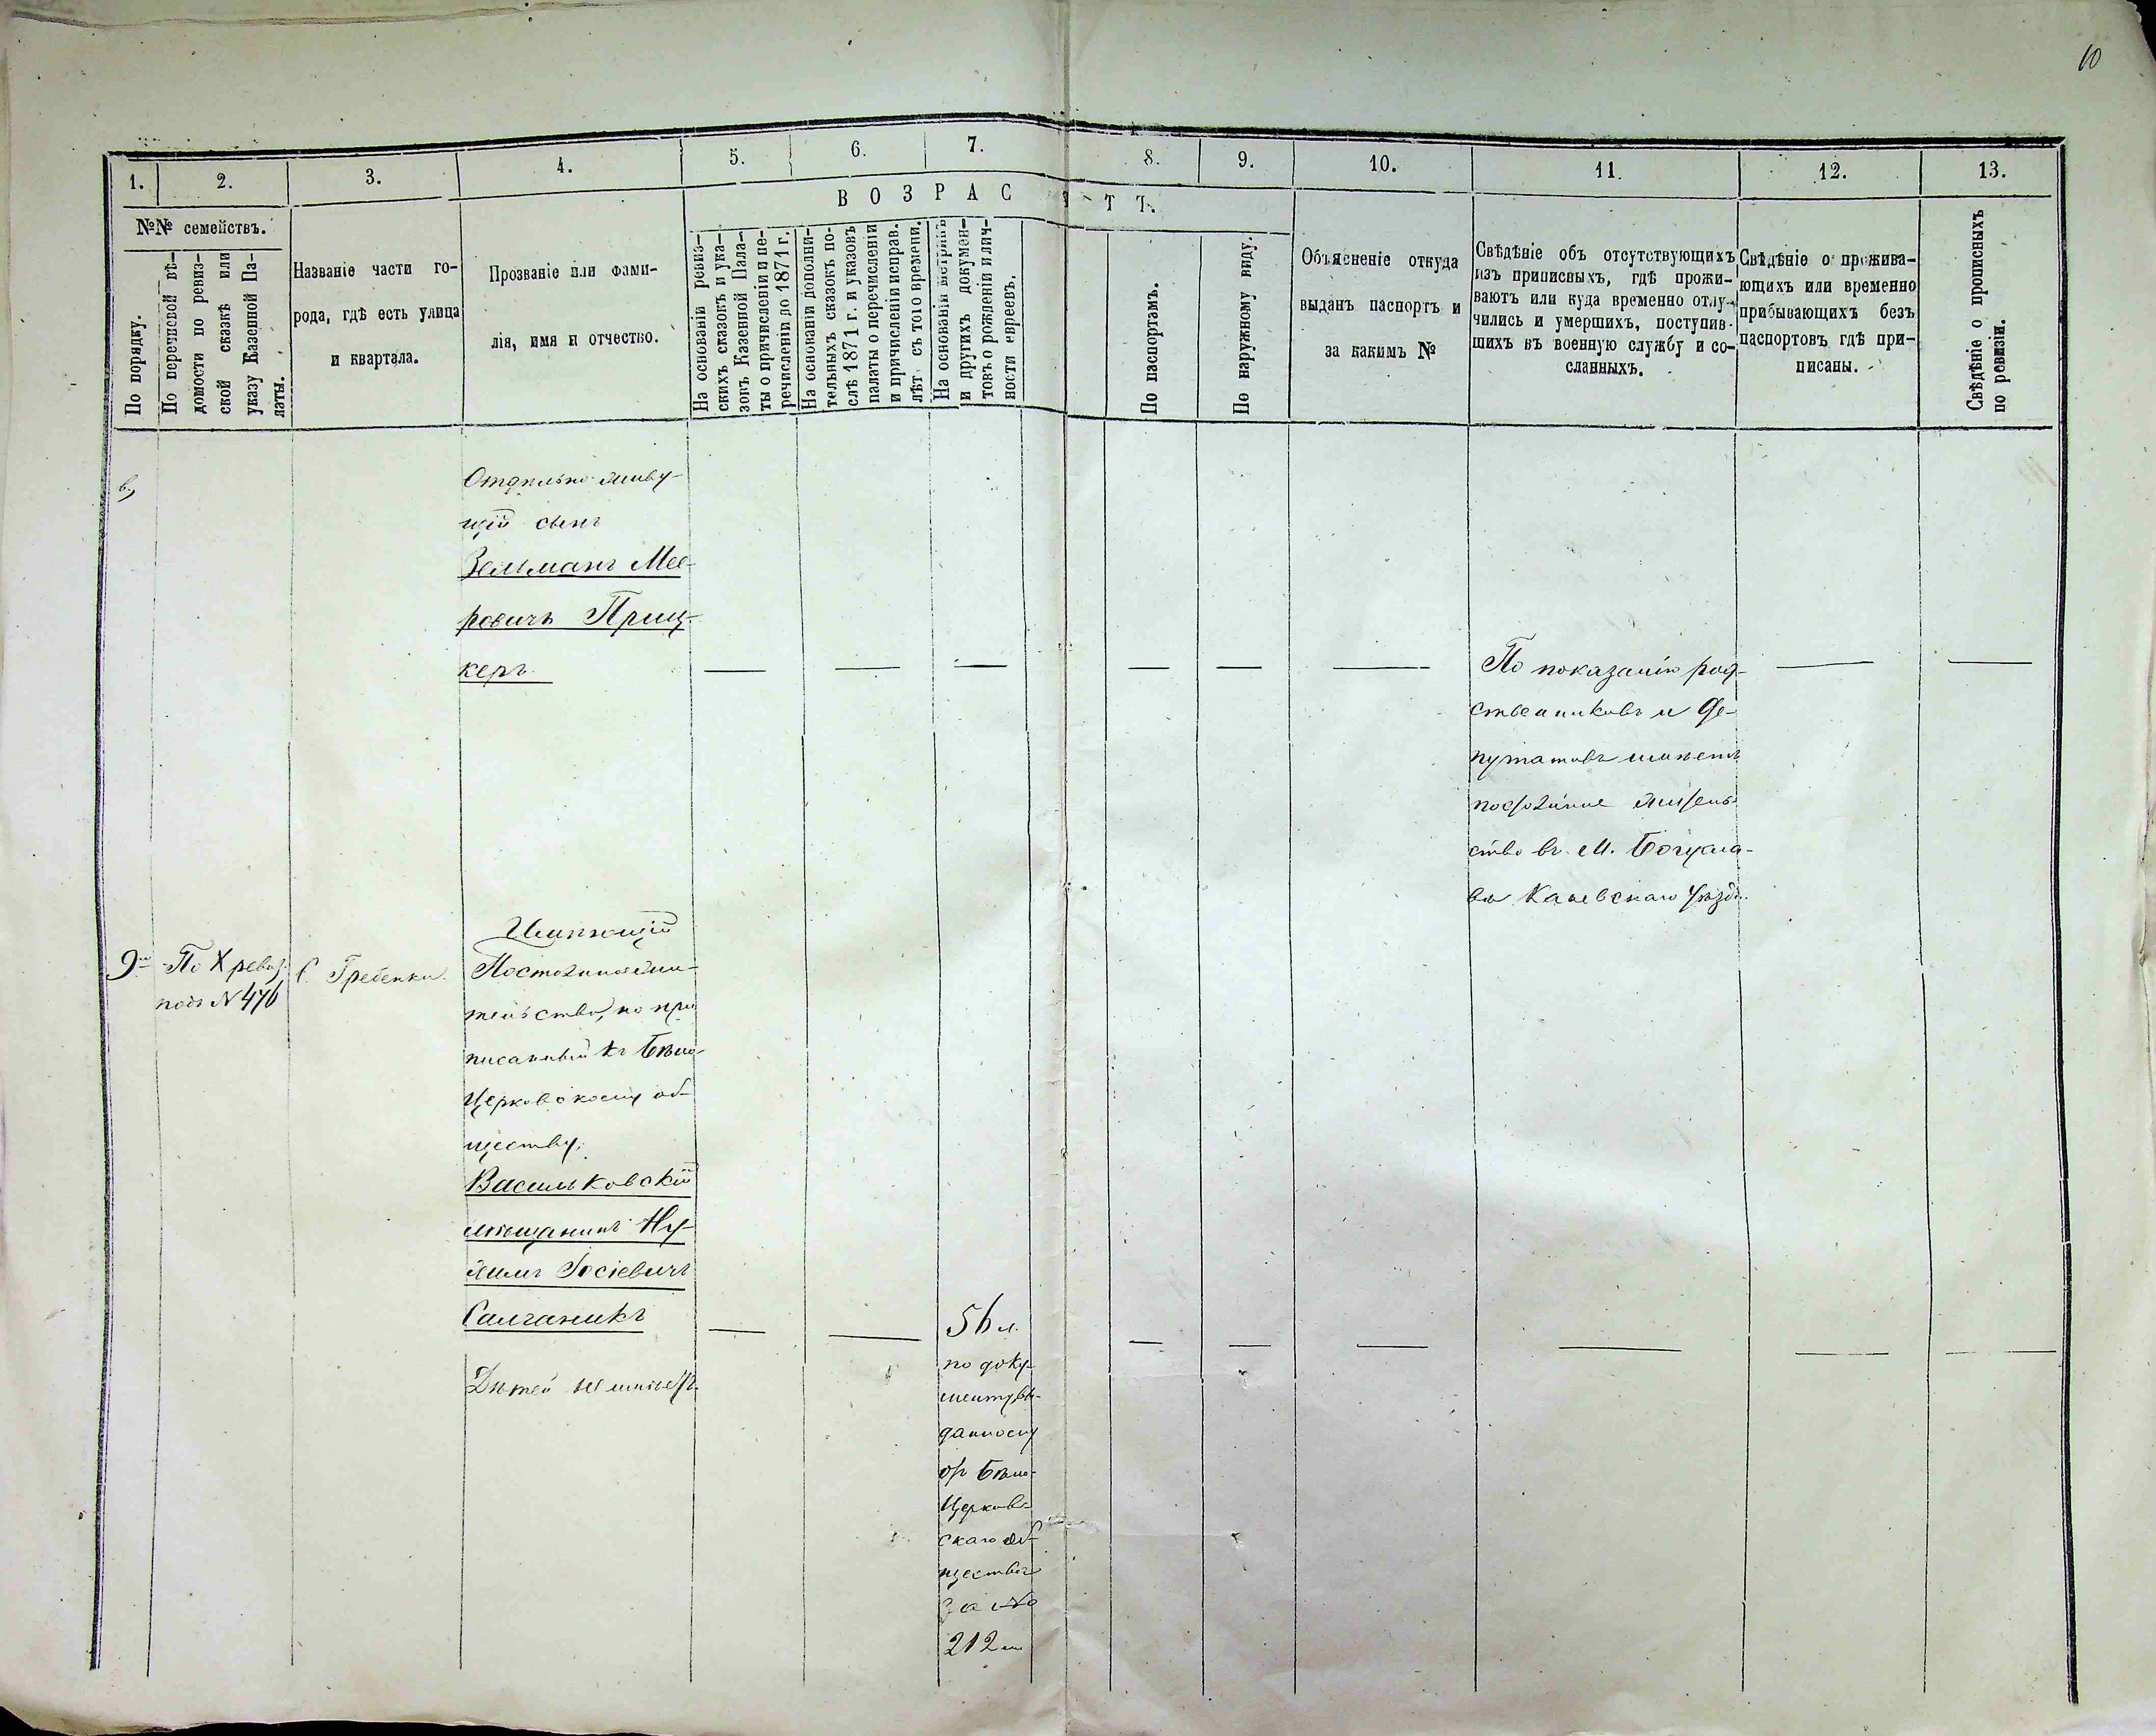 10
1. 2. 3. 4. 5. 6. 7. 8. 9. 10. 11. 12. 13.
№№ семействъ.
По порядку.
По перечневой вѣ-
домости по ревиз-
ской сказкѣ или
указу Казенной Па-
латы.
Названіе части го-
рода, гдѣ есть улица
и квартала.
Прозваніе или фами-
лія, имя и отчество.
ВОЗРАСТЪ.
На основаніи ревиз-
скихъ сказокъ и ука-
зовъ Казенной Пала-
ты о причисленіи и пе-
речисленіи до 1871 г.
На основаніи дополни-
тельныхъ сказокъ по-
слѣ 1871 г. и указовъ
палаты о перечисленіи
и причисленіи исправ.
лѣт съ того времени.
На основаніи метрикъ
и другихъ докумен-
товъ о рожденіи и лич-
ности евреевъ.
По паспортамъ.
По наружному виду.
Объясненіе откуда
выданъ паспортъ и
за какимъ №
Свѣдѣніе объ отсутствующихъ
изъ приписныхъ, гдѣ прожи-
ваютъ или куда временно отлу-
чились и умершихъ, поступив-
шихъ въ военную службу и со-
сланныхъ.
Свѣдѣніе о прожива-
ющихъ или временно
прибывающихъ безъ
паспортовъ гдѣ при-
писаны.
Свѣдѣніе о прописныхъ
по ревизіи.
в,
Отдѣльно живу-
щій сынъ
Зельманъ Мее-
ровичъПриц-
керъ
По показанію род-
ственниковъ и де-
путатовъ имѣетъ
постоянное житель-
ство въ м. Богусла-
вѣ Каневскаго уѣзда.
9й
По X ревиз.
подъ № 476
С. Гребенки.
Имѣющій
Постоянное жи-
тельство, но при
писанный къ Бѣло-
Церковскому об-
ществу,
Васильковскій
мѣщанинъ Ну-
химъ Іосіевичъ
Салганикъ
56 л.
по доку-
менту вы-
данному
отъ Бѣло-
Церков-
скаго об-
щества
за №
212 мъ
Дѣтей не имѣетъ.